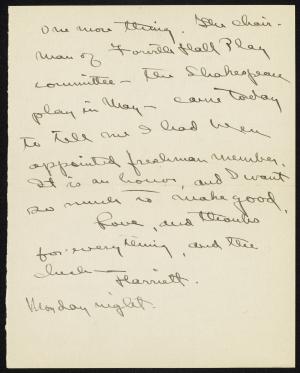 One more thing. The chair-
man of Fourth Hall Play
committee - the Shakespeare
play in May - came today
to tell me I had been
appointed freshman member.
It is an honor, and I want
so much to make good.
Love, and thanks
for everything, and the
check -
Harriett.
Monday night.